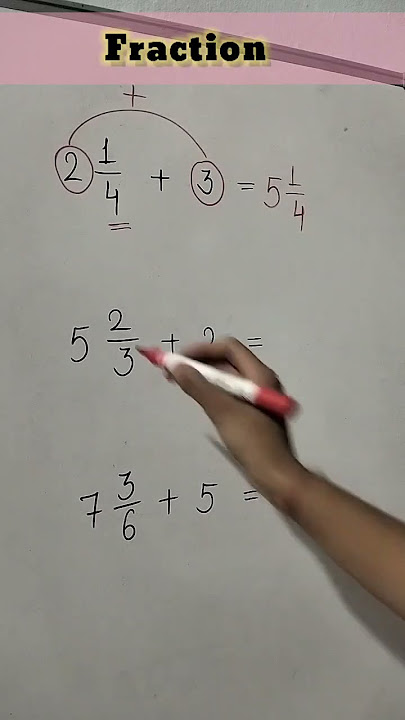 Fraction
+
2 1/4 + 3 = 5 1/4
5 2/3 + =
7 3/6 + 5 =